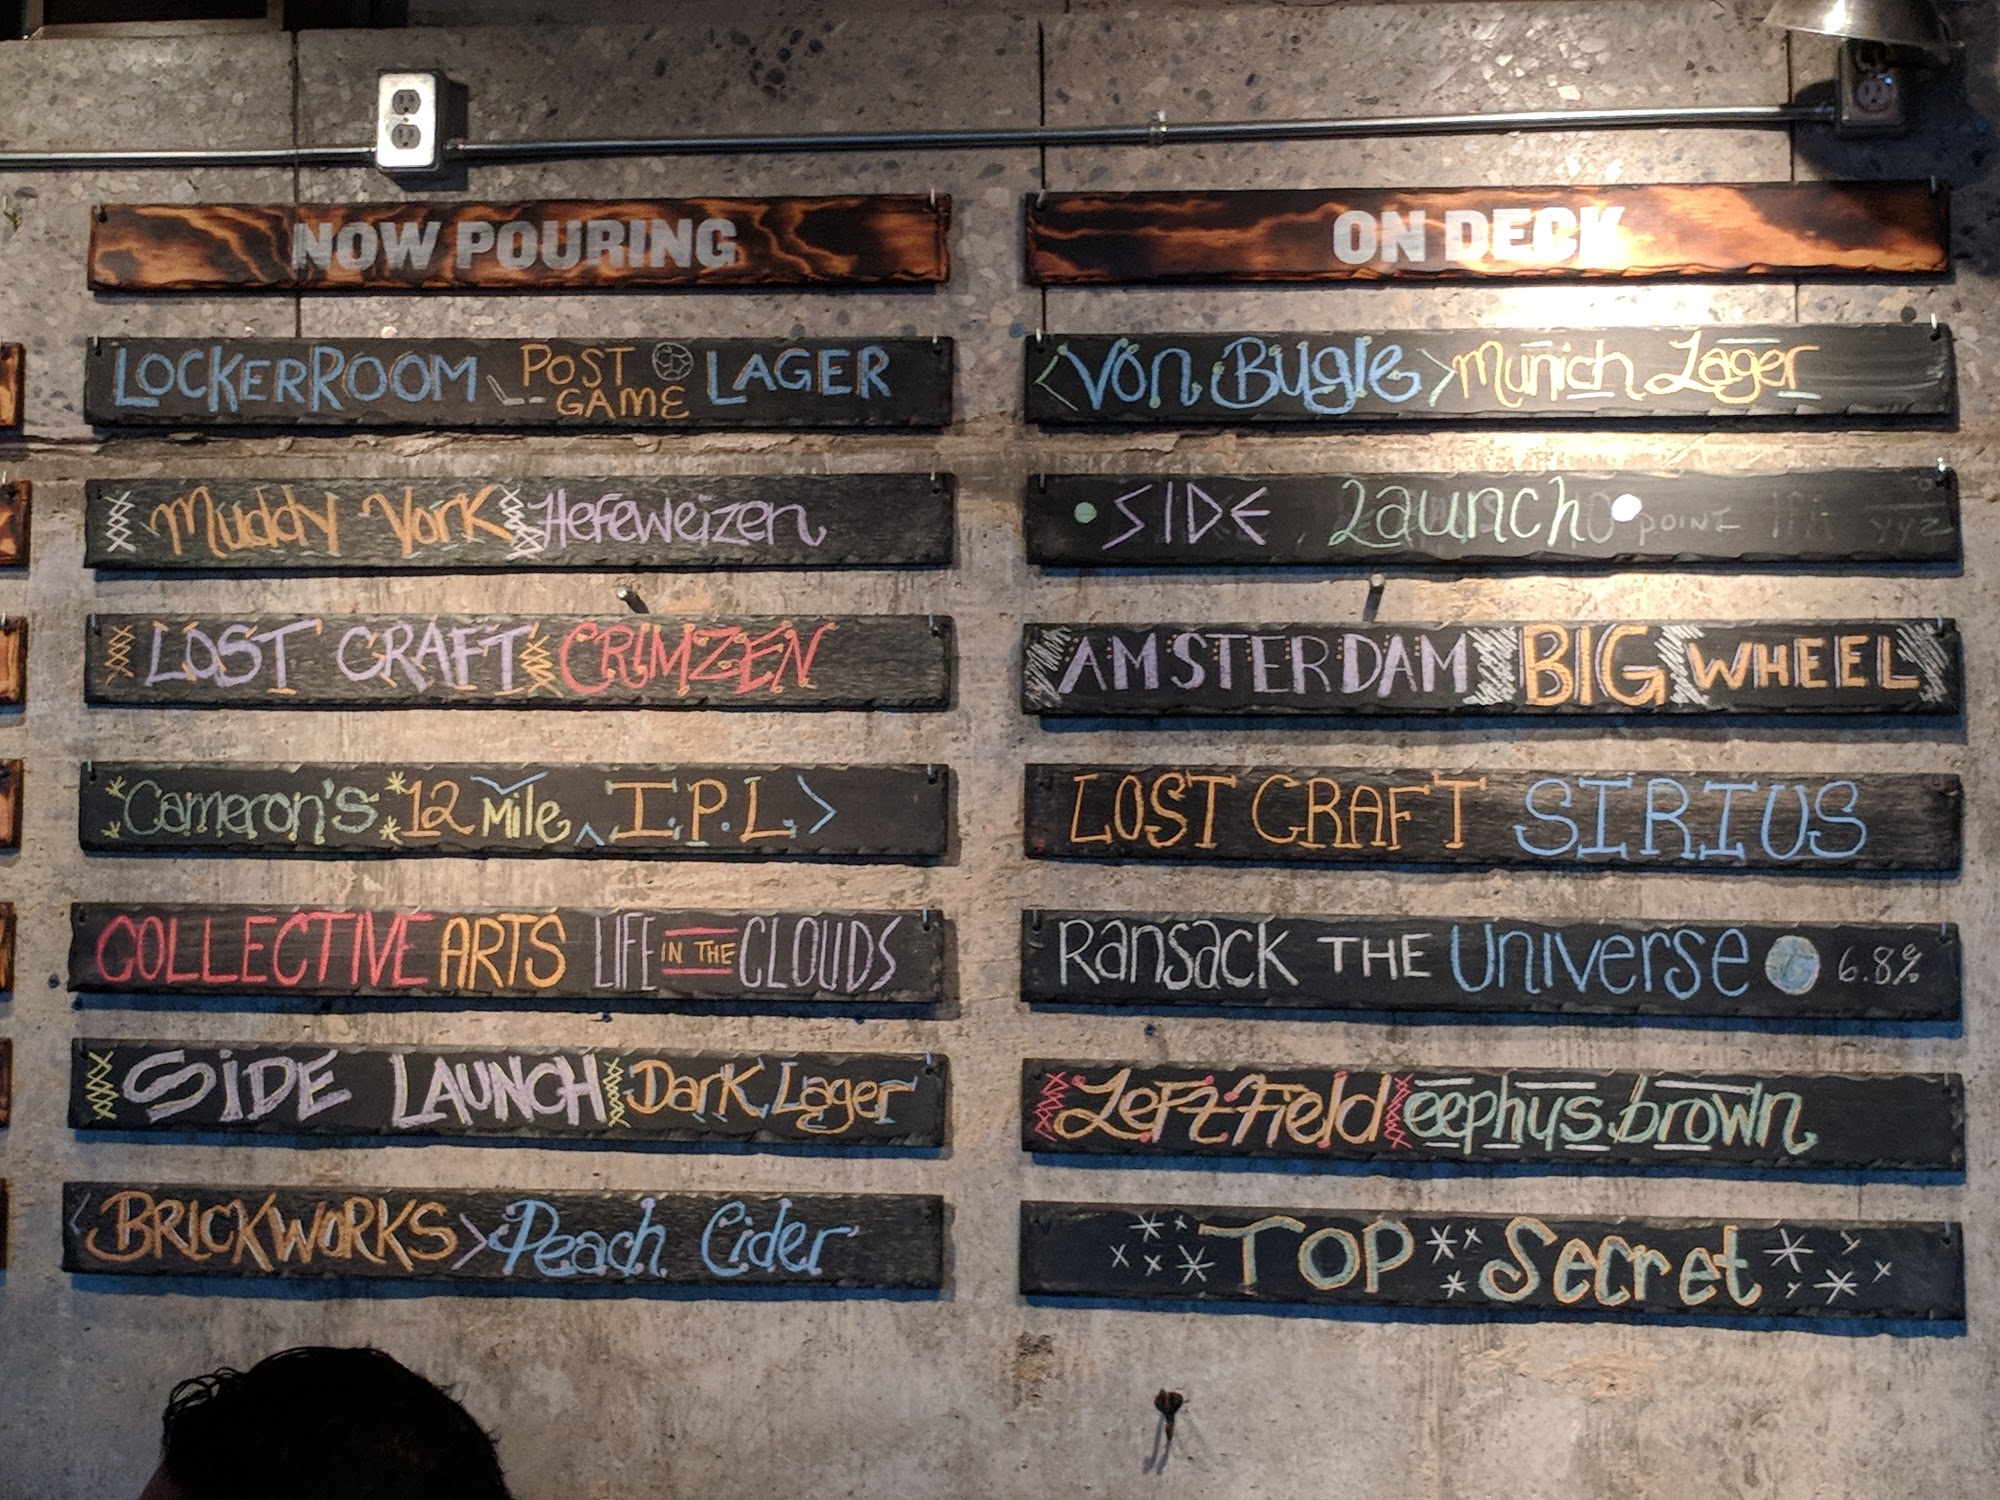 NOW POURING
LOCKERROOM POST GAME LAGER
Muddy York Hefeweizen
LOST CRAFT CRIMZEN
Cameron's 12 Mile I.P.L
COLLECTIVE ARTS LIFE IN THE CLOUDS
SIDE LAUNCH Dark Lager
BRICKWORKS Peach Cider
ON DECK
Von Bugle Munich Lager
SIDE Launch POINT YYZ
AMSTERDAM BIG WHEEL
LOST CRAFT SIRIUS
RANSACK THE UNIVERSE 6.8%
Left Field eephus brown
TOP Secret